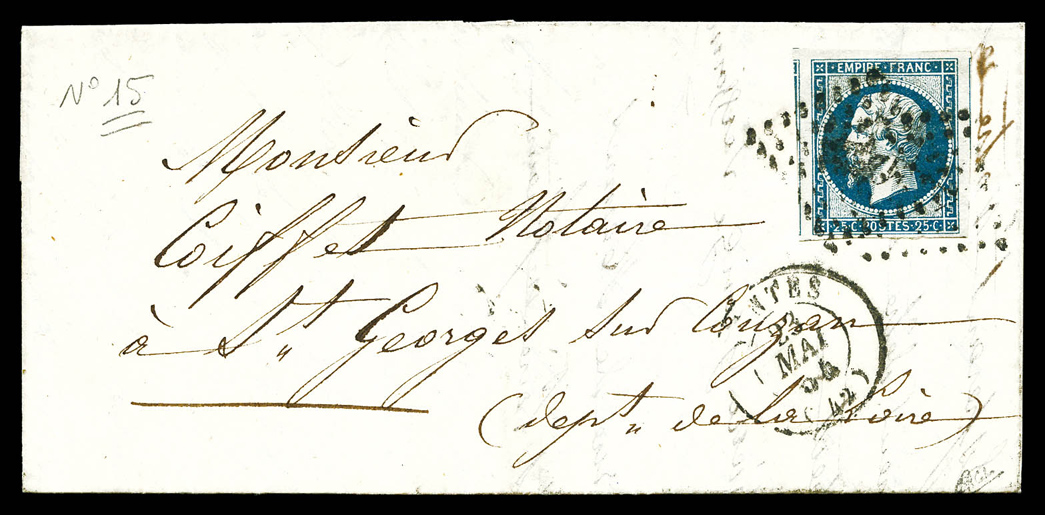 N° 15
EMPIRE · FRANC ·
25·C·POSTES·25·C
Monsieur
Coiffet Notaire
à St. Georges sur Couzan
(dept. de la Loire)
NTES
23
MAI
54
(42)